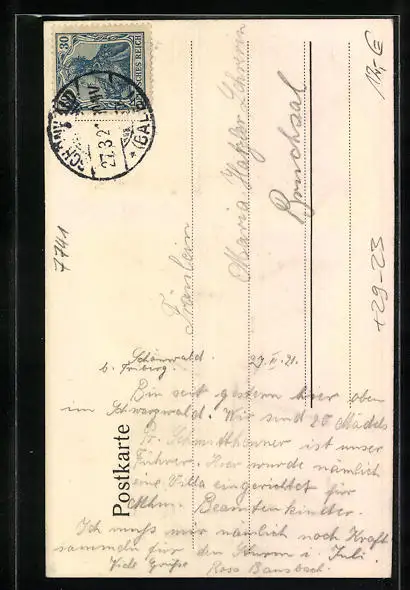 30
DEUTSCHES REICH
27.3.21
(BAD
12,-€
7741
+29-23
Postkarte
Fräulein
Maria
Bruchsal
Schönwald 27. III. 21.
b. Triberg.
Bin seit gestern hier oben
im Schwarzwald. Wir sind 20 Mädels
Pr. Schmitthenner ist unser
Führer. Hier wurde nämlich
eine Villa eingerichtet für
Beamtenkinder.
Ich muß mir nämlich noch Kraft
sammeln für den Sturm i. Juli.
Viele Grüße Rosa Bansbach.